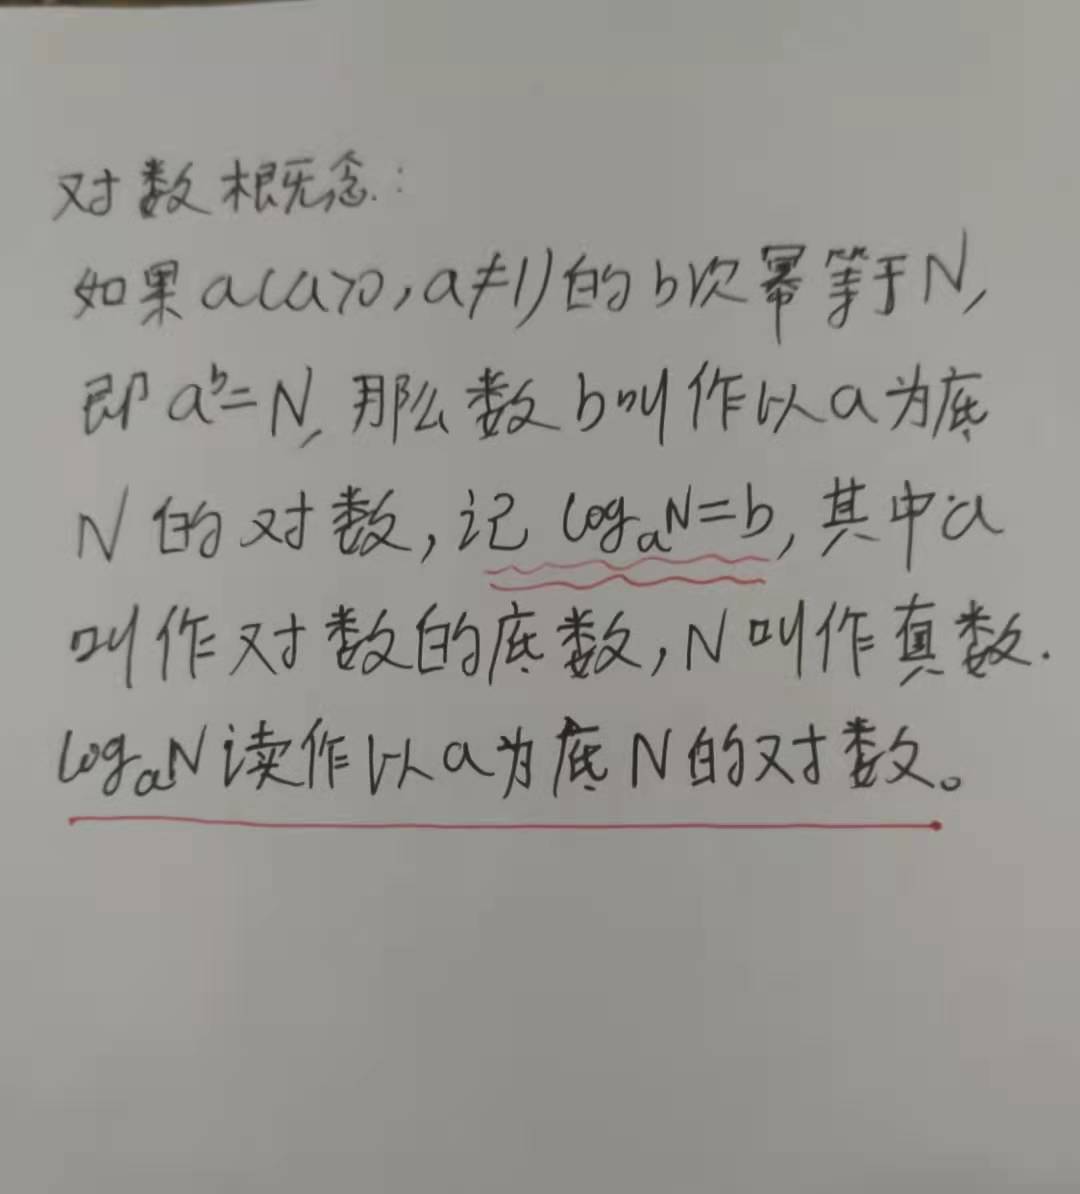 对数概念:
如果a(a>0,a≠1)的b次幂等于N,
即aᵇ=N,那么数b叫作以a为底
N的对数,记logₐN=b,其中a
叫作对数的底数,N叫作真数.
logₐN读作以a为底N的对数。